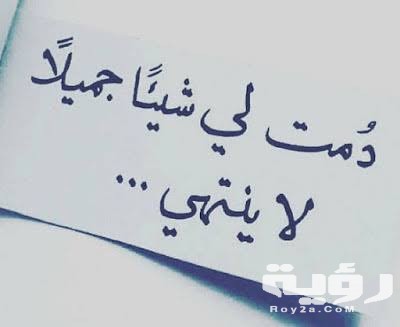 دُمت لي شيئًا جميلًا
لا ينتهي ...
رؤية
Roy2a.CoM